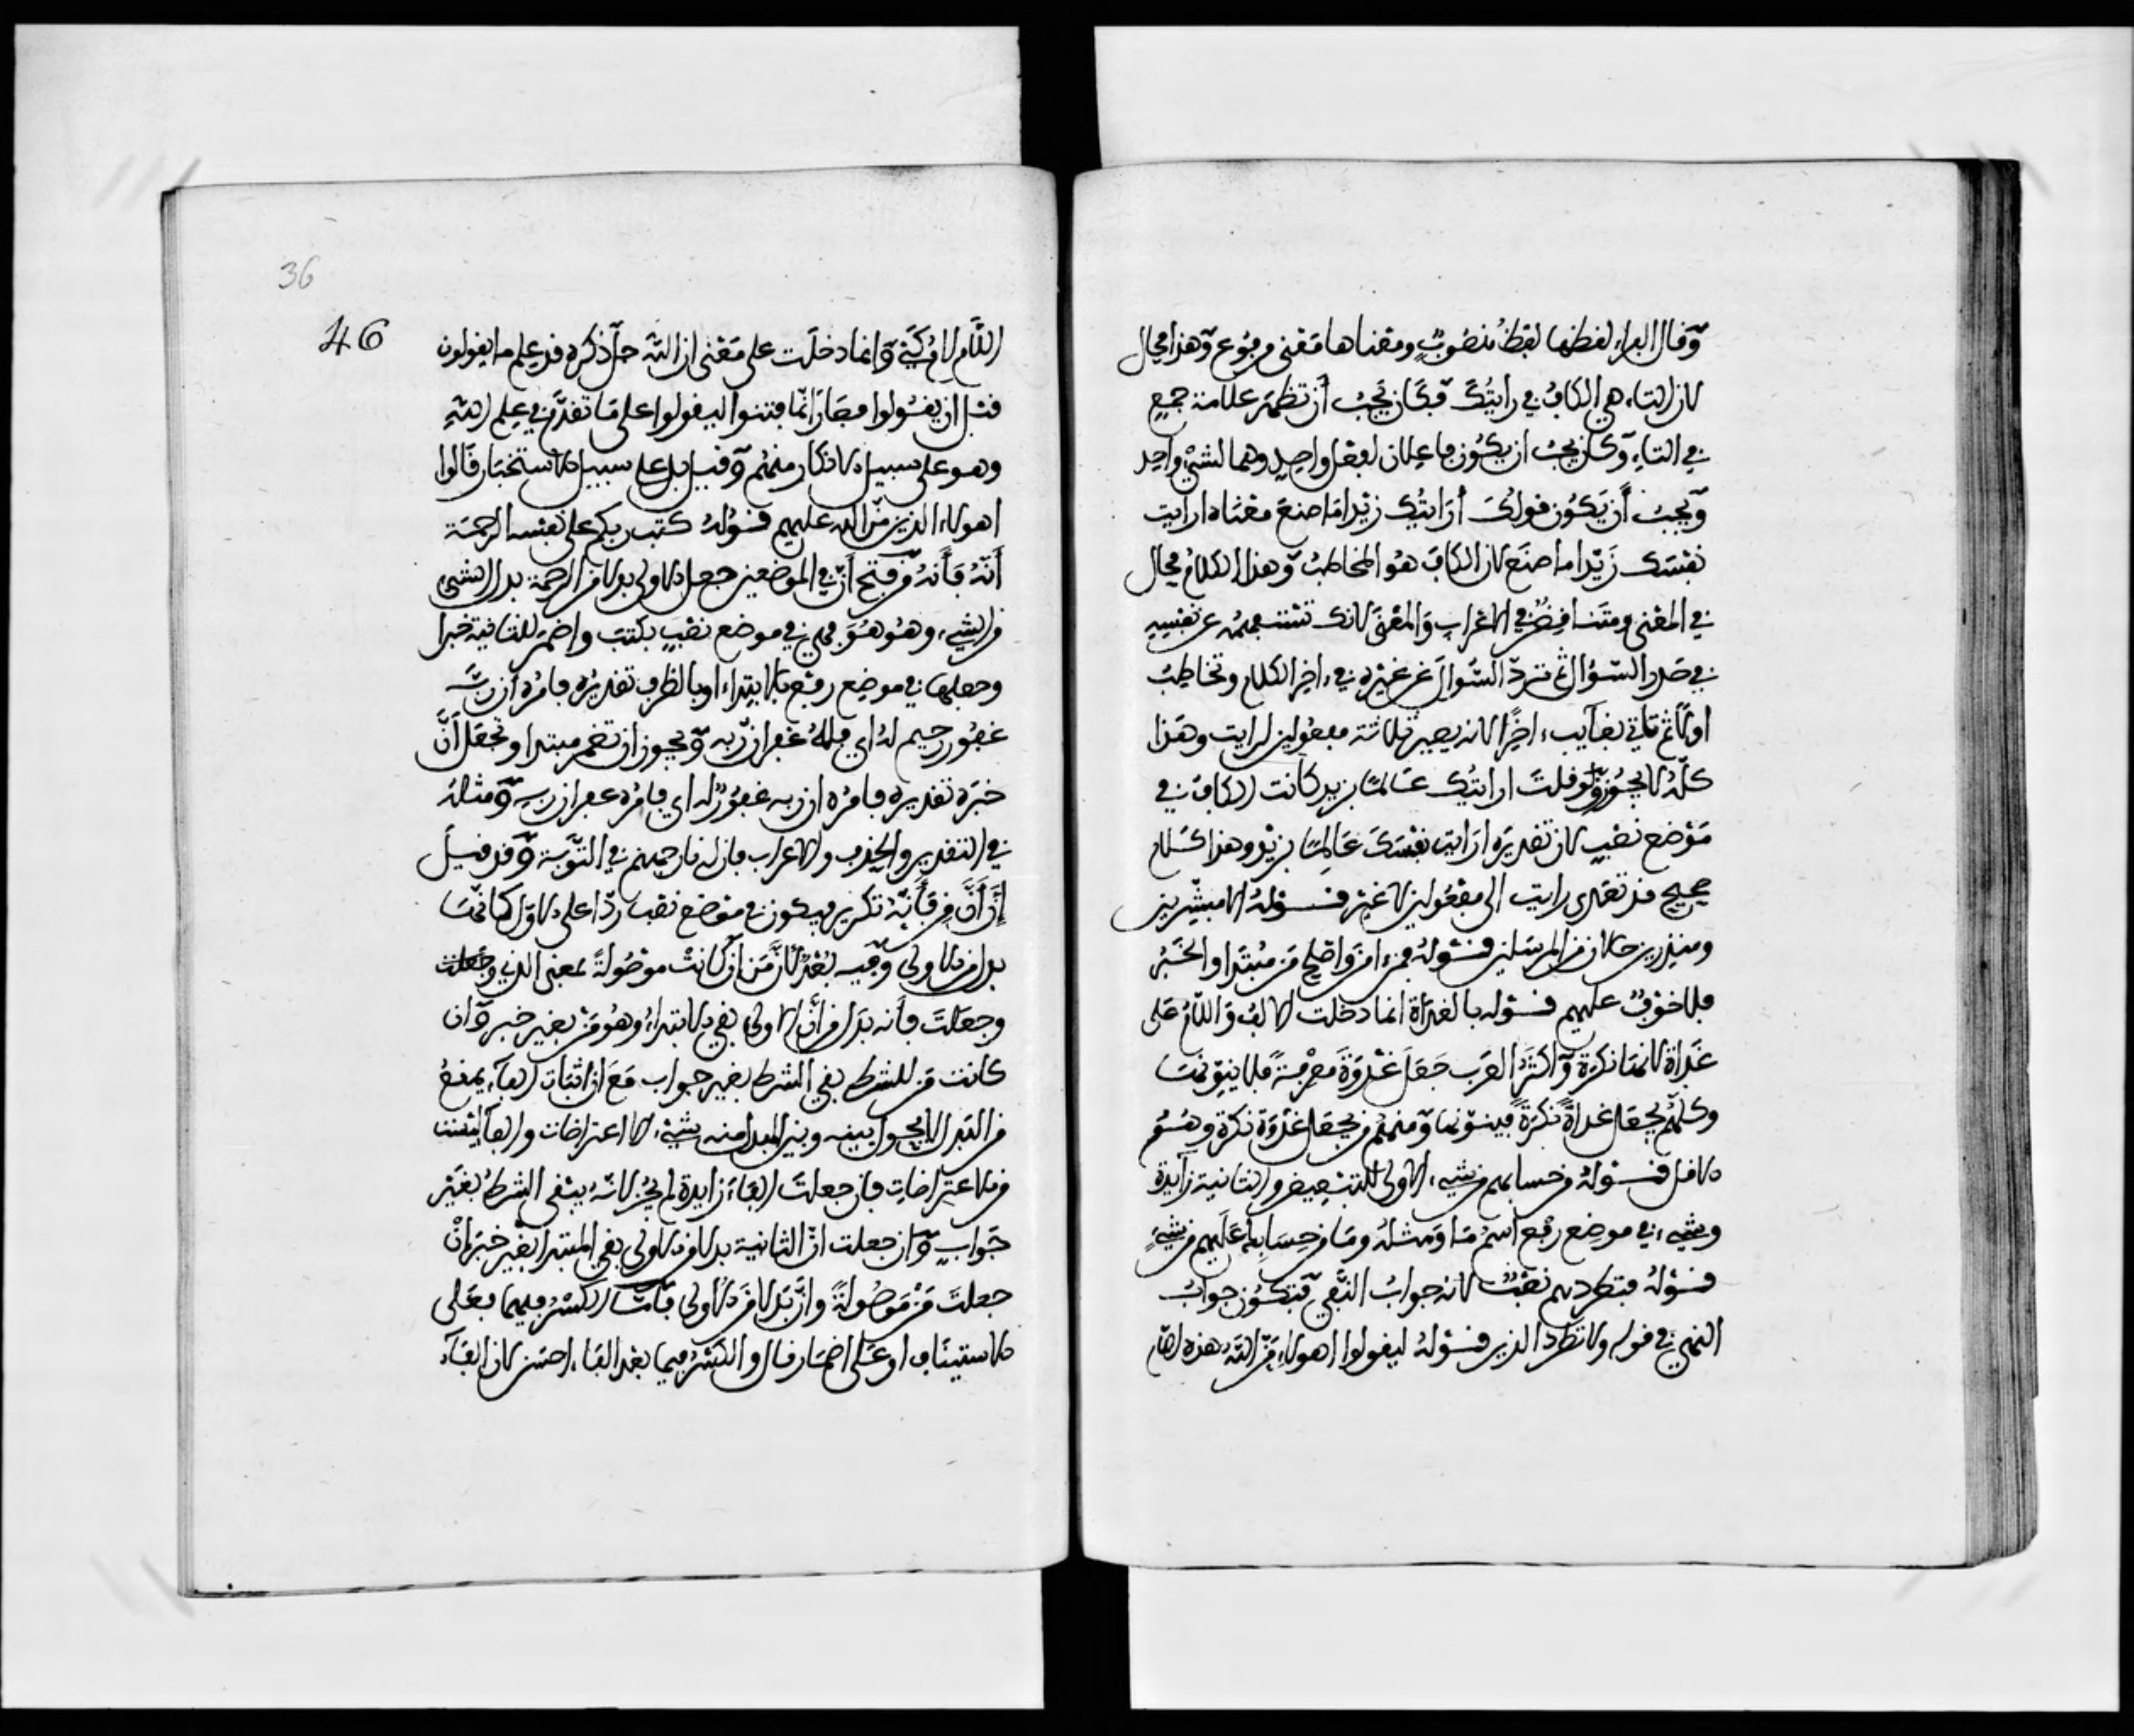 وقال الفراء لفظها لفظ منصوب ومعناها معنى مرفوع وهذا محال
لان التاء هي الكاف في رايتك فكان يجب أن تظهر علامة جمع
في التاء وكان يجب ان يكون فاعلان لفعل واحد وهما لشيء واحد
ويجب أن يكون قولك أرايتك زيدا ما صنع معناه ارايت
نفسك زيدا ما صنع لان الكاف هو المخاطب وهذا الكلام محال
في المعنى ومتناقض في الاعراب والمعنى لانك تستفهمه عن نفسه
في صدر السؤال ثم ترد السؤال عن غيره في ءاخر الكلام وتخاطب
اولا ثم تاتي بغايب ءاخرا لانه يصير ثلاثة مفعولين لرايت وهذا
كله لا يجوز ولو قلت ارايتك عالما بزيد كانت الكاف في
موضع نصب لان تقديره ارايت نفسك عالما بزيد وهذا كلام
صحيح قد تعدى رايت الى مفعولين لا غير قوله الا مبشرين
ومنذرين حالان من المرسلين قوله فمن ءامن واصلح من مبتدا والخبر
فلا خوف عليهم قوله بالغداة انما دخلت الالف واللام على
غداة لانها نكرة وأكثر العرب جعل غدوة معرفة فلا ينونها
وكلهم يجعل غداة نكرة فينونها ومنهم من يجعل غدوة نكرة وهم
الاقل قوله من حسابهم من شيء الاولى للتبعيض والثانية زايدة
وشيء في موضع رفع اسم ما ومثله وما من حسابك عليهم من شيء
قوله فتطردهم نصب لانه جواب النفي فتكون جواب
النهي في قوله ولا تطرد الذين قوله ليقولوا اهولاء من الله هذه لام
اللام لام كي وانما دخلت على معنى ان الله جل ذكره قد علم ما يقولون
قبل ان يقولوا فصار انما فتنوا ليقولوا على ما تقدم في علم الله
وهو على سبيل الانكار منهم وقيل بل على سبيل الاستخبار قالوا
اهولاء الذين من الله عليهم قوله كتب ربكم على نفسه الرحمة
أنه فأنه من فتح أن في الموضعين جعل الاولى بدلا من الرحمة بدل الشيء
من الشيء وهو هو فهي في موضع نصب بكتب واضمر للثانية خبرا
وجعلها في موضع رفع بالابتداء او بالظرف تقديره فامره أن ربه
غفور رحيم له اي فله غفران ربه ويجوز ان تضمر مبتدا وتجعل أن
خبره تقديره فامره ان ربه غفور له اي فامره غفران ربه ومثله
في التقدير والحذف والاعراب فان له نار جهنم في التوبة وقد قيل
إن أن من فأنه تكرير فيكون في موضع نصب ردا على الاول كانها
بدل من الاولى وفيه بعد لان من ان كانت موصولة بمعنى الذي وجعلت
وجعلت فأنه بدل من أن الاولى بقي الابتداء وهو من بغير خبر وان
كانت من للشرط بقي الشرط بغير جواب مع ان اثبات الفاء يمنع
من البدل لا يحول بينه وبين المبدل منه شيء الا اعتراضات والفا ليست
من الاعتراضات فان جعلت الفاء زايدة لم يجز لانه يبقى الشرط بغير
جواب وان جعلت ان الثانية بدلا من الاولى بقي المبتدا بغير خبر ان
جعلت من موصولة وان بدلا من الاولى فأما الكسر فيهما فعلى
الاستيناف او على اضمار قال والكسر فيما بعد الفاء احسن لان الفاء
36
46